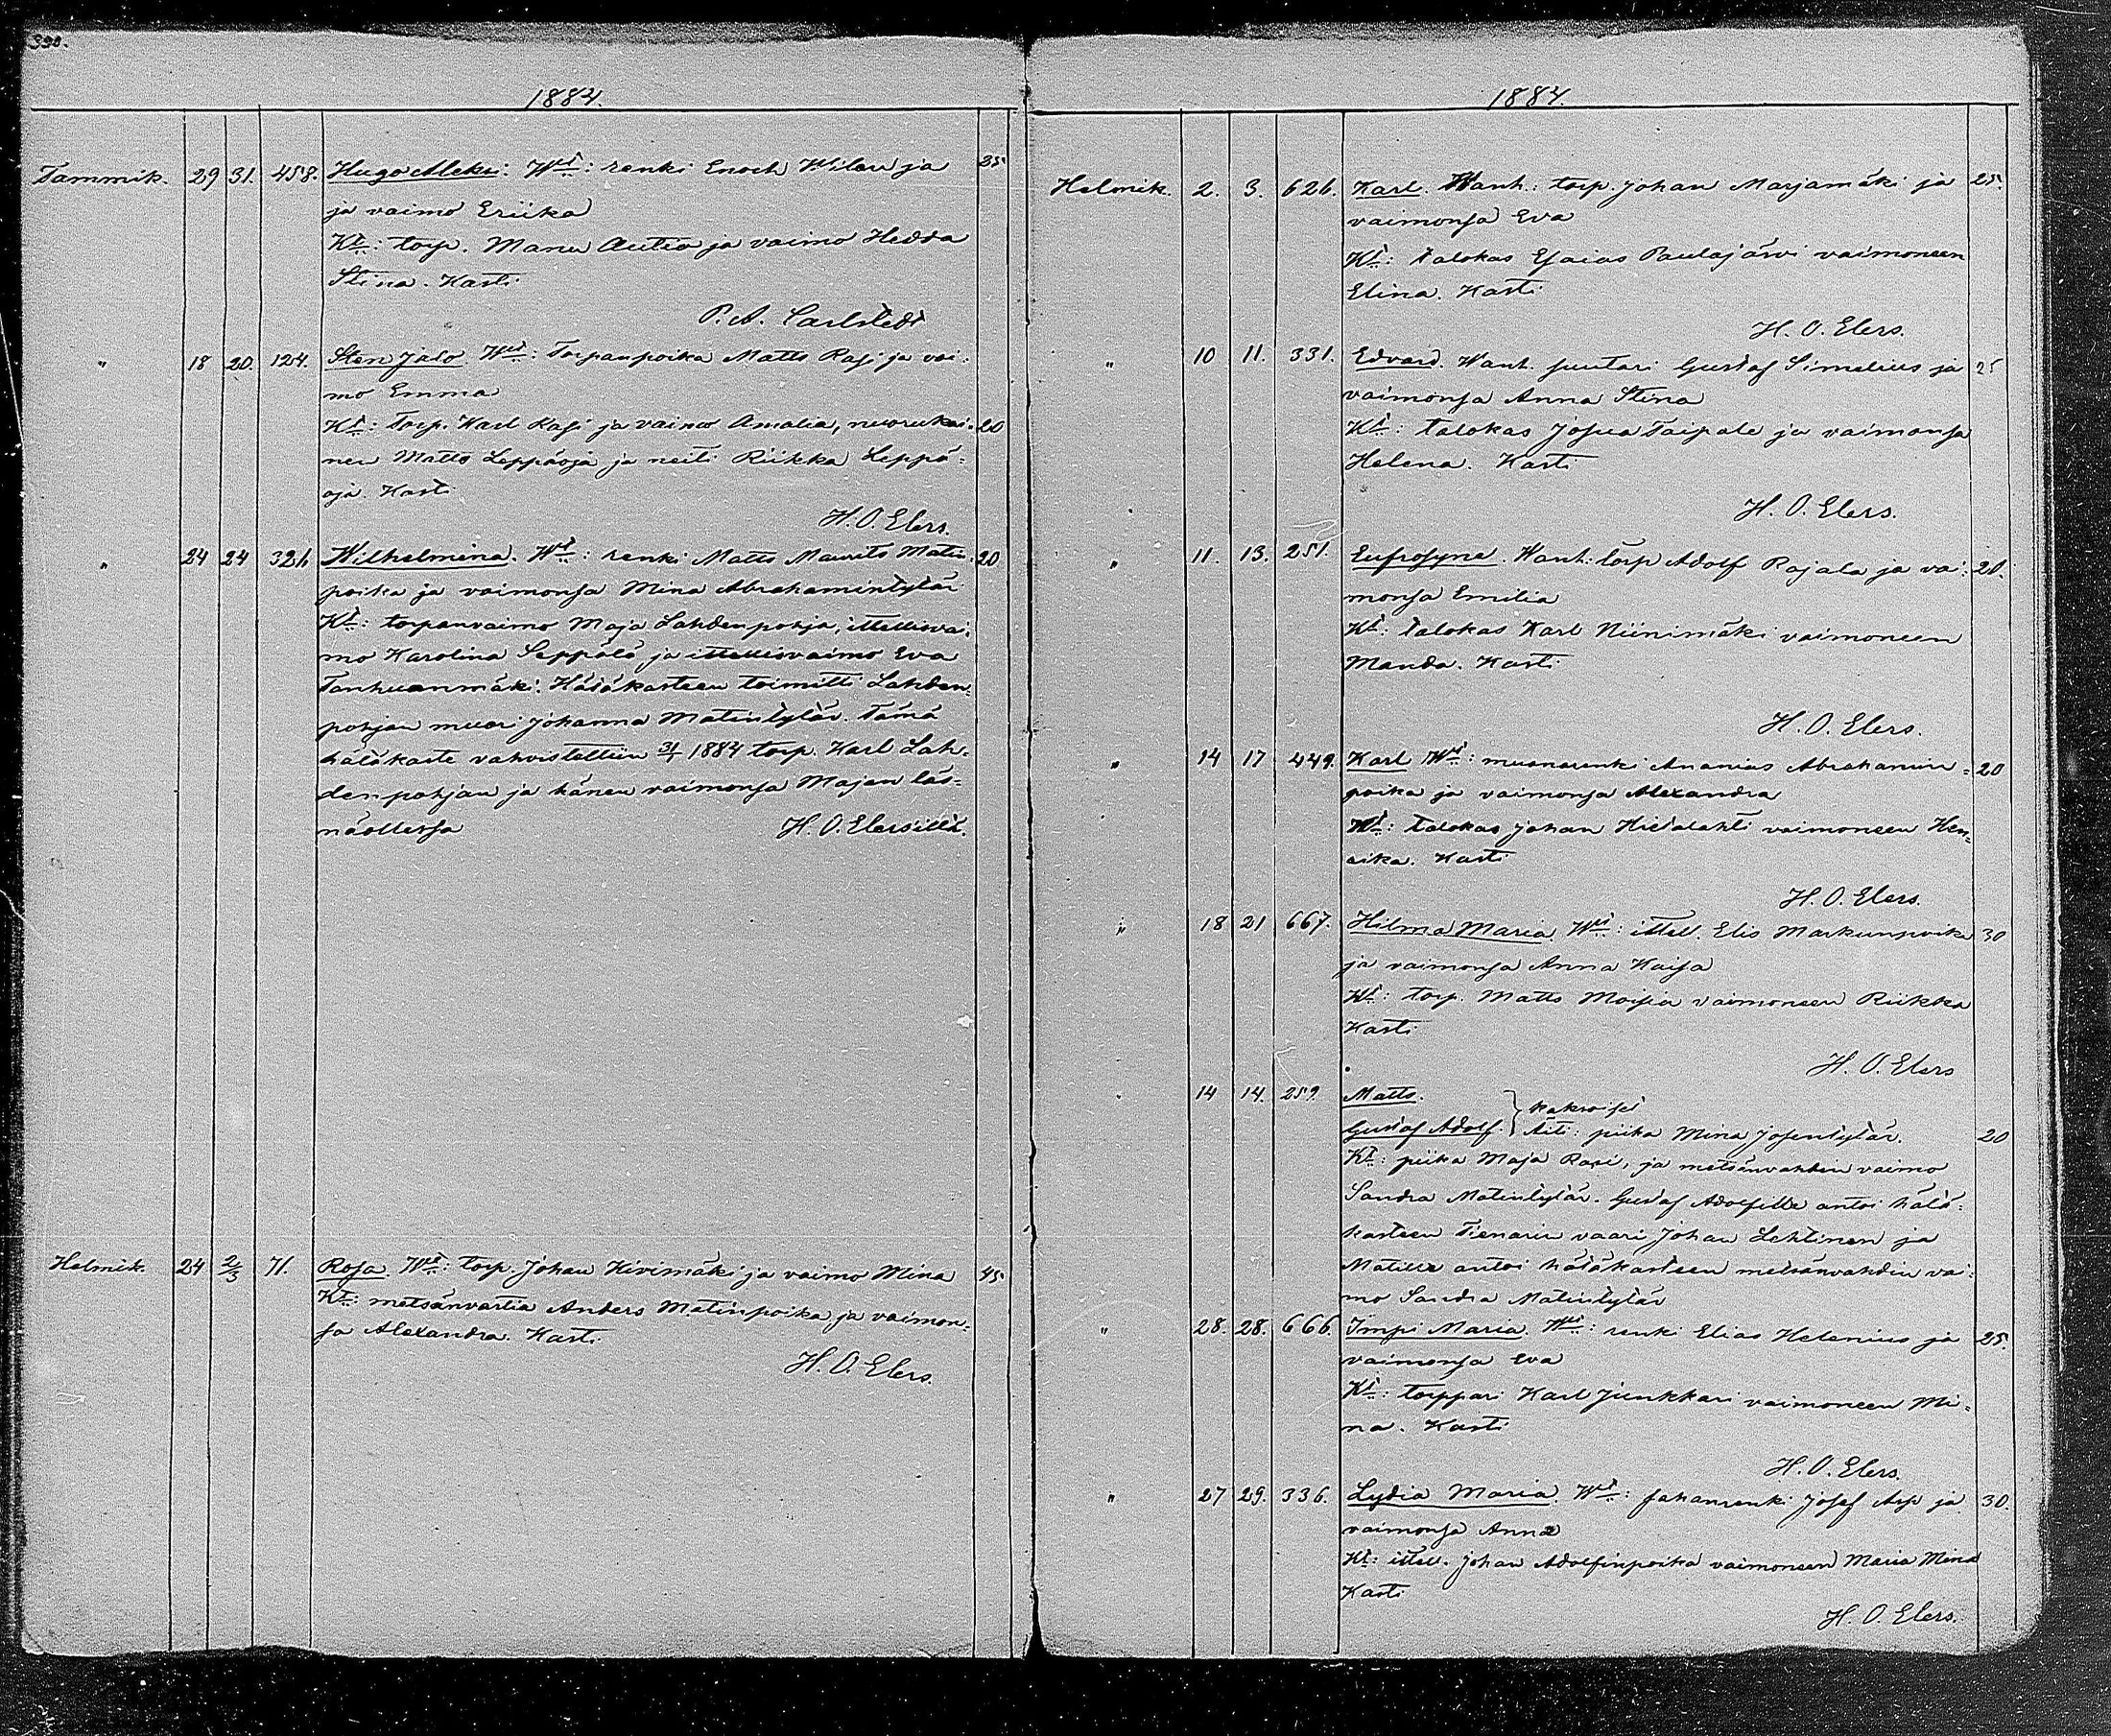 390.
1884.
Tammik. 29 31. 458. Hugo Aleksi. Wht: renki Enoch Wilen ja 25
ja vaimo Eriika
Kt: torp. Manu Autio ja vaimo Hedda
Stina. Kasti
P. A. Carlstedt
" 18 20. 124. Sten Jalo. Wht: Torpanpoika Matts Rasi ja vai=
mo Emma
Kt: Torp. Karl Rasi ja vaimo Amalia, nuorukai= 20
nen Matts Leppäoja ja neiti Riikka Leppä=
oja. Kasti
H. O. Elers.
" 24 24 326 Wilhelmina. Wht: renki Matts Maurits Matin= 20
poika ja vaimonsa Mina Abrahamintytär
Kt: torpanvaimo Maja Lahdenpohja, ittellisvai=
mo Karolina Seppälä ja ittellisvaimo Eva
Tanhuanmäki. Hätäkasteen toimitti Lahden=
pohjan muori Johanna Matintytär. Tämä
hätäkaste vahvistettiin 31/1 1884 torp. Karl Lah=
denpohjan ja hänen vaimonsa Majan läs=
näollessa H. O. Elersiltä.
Helmik. 24 2/3 71. Rosa. Wht: torp. Johan Kivimäki ja vaimo Mina 45
Kt: metsänvartia Anders Matinpoika ja vaimon=
sa Alexandra. Kasti
H. O. Elers.
1884.
Helmik. 2. 3. 626. Karl. Wanh.: torp. Johan Marjamäki ja 25.
vaimonsa Eva
Kt: talokas Esaias Paulajärvi vaimoneen
Elina. Kasti
H. O. Elers.
" 10 11. 331. Edvard. Wanh. suutari Gustaf Simelius ja 25
vaimonsa Anna Stina
Kt: talokas Josua Taipale ja vaimonsa
Helena. Kasti
H. O. Elers.
" 11. 13. 251. Eufrosyne. Wanh: torp Adolf Rajala ja vai= 20.
monsa Emilia
Kt: talokas Karl Niinimäki vaimoneen
Manda. Kasti
H. O. Elers.
" 14 17 449. Karl Wht: muonarenki Ananias Abrahamin= 20
poika ja vaimonsa Alexandra
Kt: talokas Johan Hietalahti vaimoneen Hen=
rika. Kasti
H. O. Elers.
" 18 21 667. Hilma Maria. Wht: ittel. Elis Markunpoika 30
ja vaimonsa Anna Kaisa
Kt: torp. Matts Moisio vaimoneen Riikka
Kasti
H. O. Elers
" 14 14. 259. Matts.
kaksoiset
Gustaf Adolf. Äiti: piika Mina Josefintytär. 20
Kt: piika Maja Rasi, ja metsänvahdin vaimo
Sandra Matintytär. Gustaf Adolfille antoi hätä=
kasteen Tienarin vaari Johan Lehtinen ja
Matille antoi hätäkasteen metsänvahdin vai=
mo Sandra Matintytär
" 28. 28. 666. Impi Maria. Wht: renki Elias Helenius ja 25.
vaimonsa Eva
Kt: torppari Karl Junkkari vaimoneen Mi=
na. Kasti
H. O. Elers.
" 27 29. 336. Lydia Maria. Wht: sahanrenki Josef Asp ja 30.
vaimonsa Anna
Kt: ittel. Johan Adolfinpoika vaimoneen Maria Mina
Kasti
H. O. Elers.